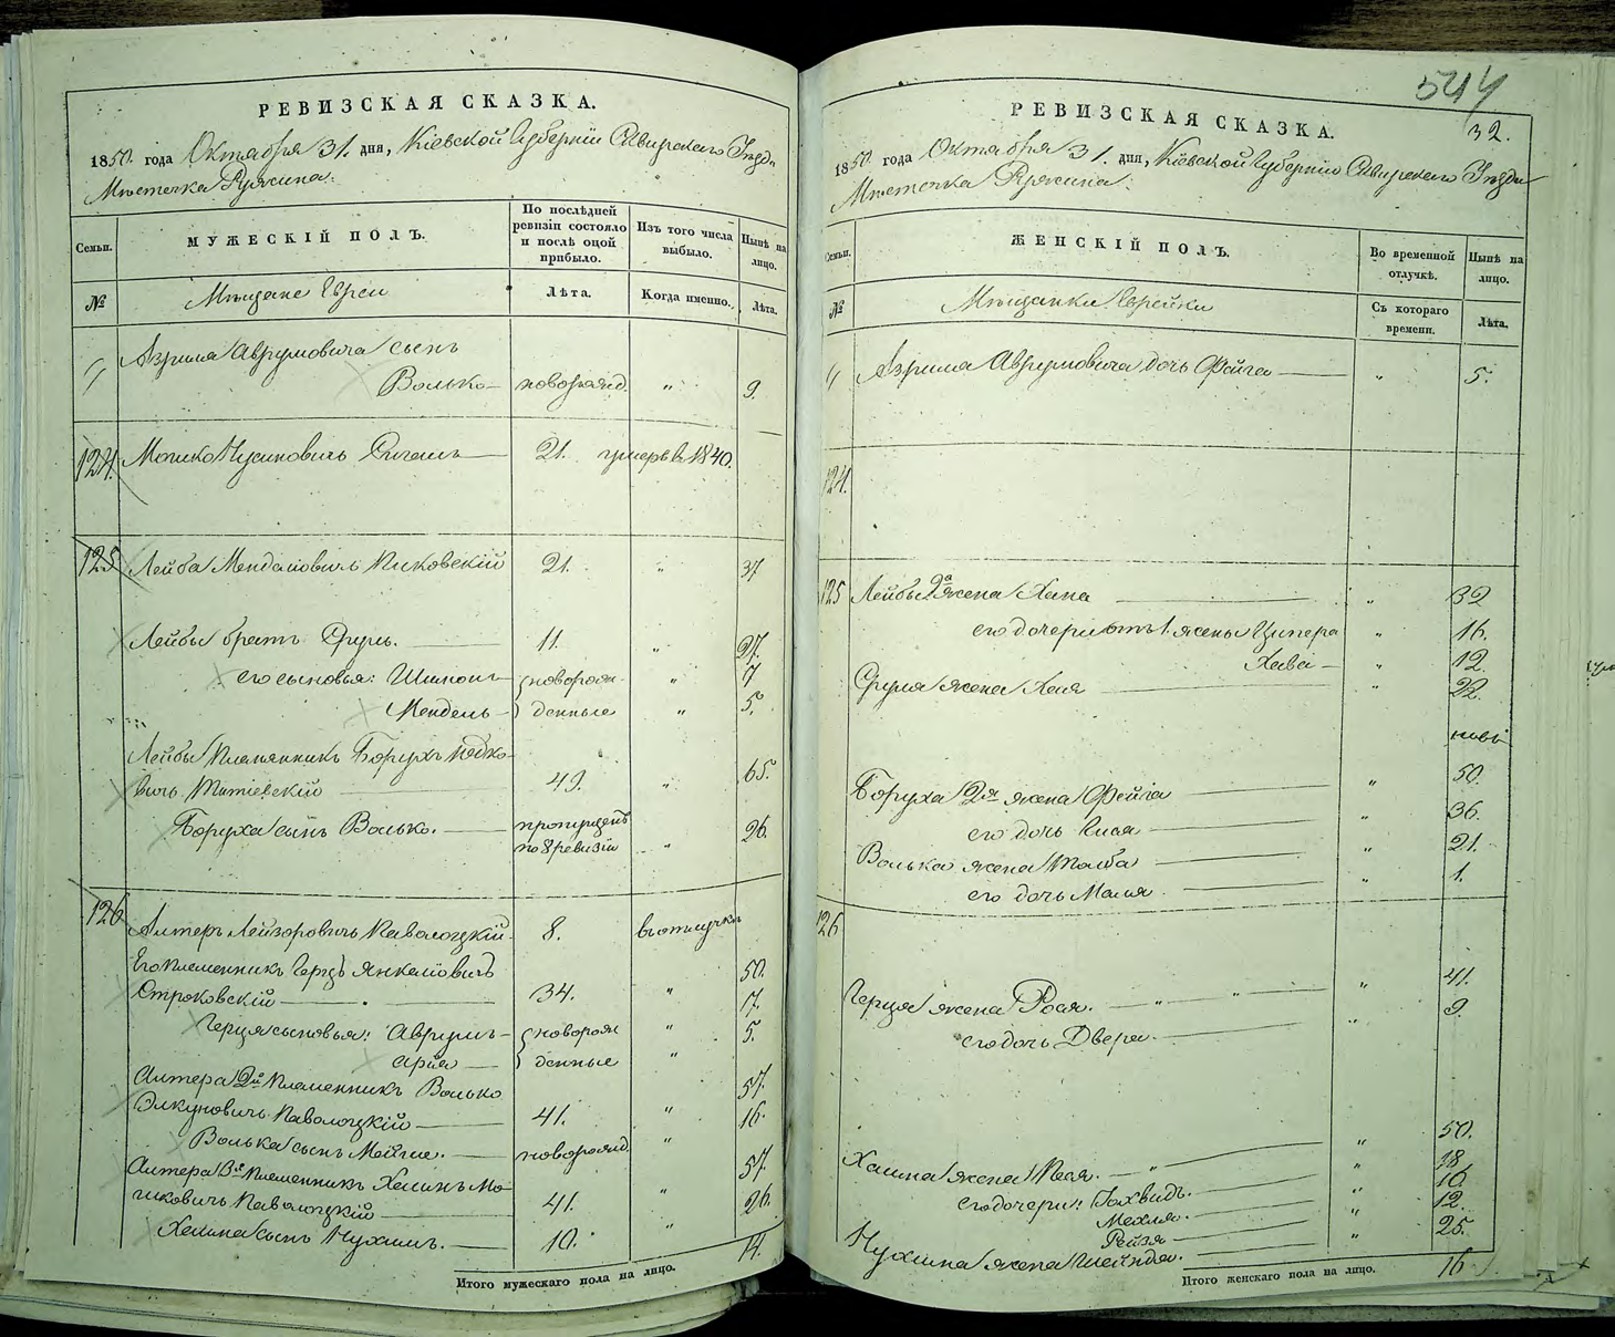 РЕВИЗСКАЯ СКАЗКА.
1850. года Октября 31. дня, Кіевской Губерніи Сквирскаго Уѣзда
Мѣстечка Ружина.
Семьи.
МУЖЕСКІЙ ПОЛЪ.
По послѣдней ревизіи состояло и послѣ оной прибыло.
Изъ того числа выбыло.
Нынѣ на лицо.
№
Мѣщане Евреи
Лѣта.
Когда именно.
Лѣта.
Азрила Аврумовича сынъ
Волько новорожд. " 9.
124. Мошко Нусиновичъ 21. умеръ въ 1840.
125 Лейба Менделовичъ Пиковскій 21. " 37
Лейбы братъ Сруль. 11. " 27.
его сыновья: Шимонъ новорож- " 7
Мендель денные " 5.
Лейбы племянникъ Борухъ
вичъ 49. " 65.
Боруха сынъ Волько. пропущенъ
по 8 ревизіи " 26.
126 Алтеръ Лейзоровичъ Паволоцкій 8. въ отлучкѣ
Его племенникъ Герцъ Янкелiовичъ
Строковскій 34. " 50.
Герця сыновья: Аврумъ новорож " 17.
Арiа денные " 5.
Алтера 2й племенникъ Волько
Элкуновичъ Паволоцкій 41. " 57.
Волька сынъ новорожд. " 16.
Алтера 3й племенникъ Хаимъ Мо-
шковичъ Паволоцкій 41. " 57.
Хаима сынъ Нухимъ. 10. " 26.
Итого мужескаго пола на лицо. 14.
544
32.
РЕВИЗСКАЯ СКАЗКА.
1850. года Октября 31. дня, Кіевской Губерніи Сквирскаго Уѣзда
Мѣстечка Ружина.
Семьи.
ЖЕНСКІЙ ПОЛЪ.
Во временной отлучкѣ.
Нынѣ на лицо.
№
Мѣщанки Еврейки
Съ котораго времени.
Лѣта.
Азрила Аврумовича дочь Фейга " 5.
124.
125 Лейбы 2я жена Хана " 32
его дочери отъ 1. жены Ципера " 16.
Хава " 12.
Сруля жена Хая " 22.
Боруха 2я жена Фейга " 50.
его дочь " 36.
Волька жена Тауба " 21.
его дочь Маля " 1.
126
Герця жена Рося. " 41.
его дочь Двера. " 9.
Хаима жена Песя. " 50.
его дочери: " 18.
" 16.
Рейзя " 12.
Нухима жена Шейнда. " 25.
Итого женскаго пола на лицо. 16